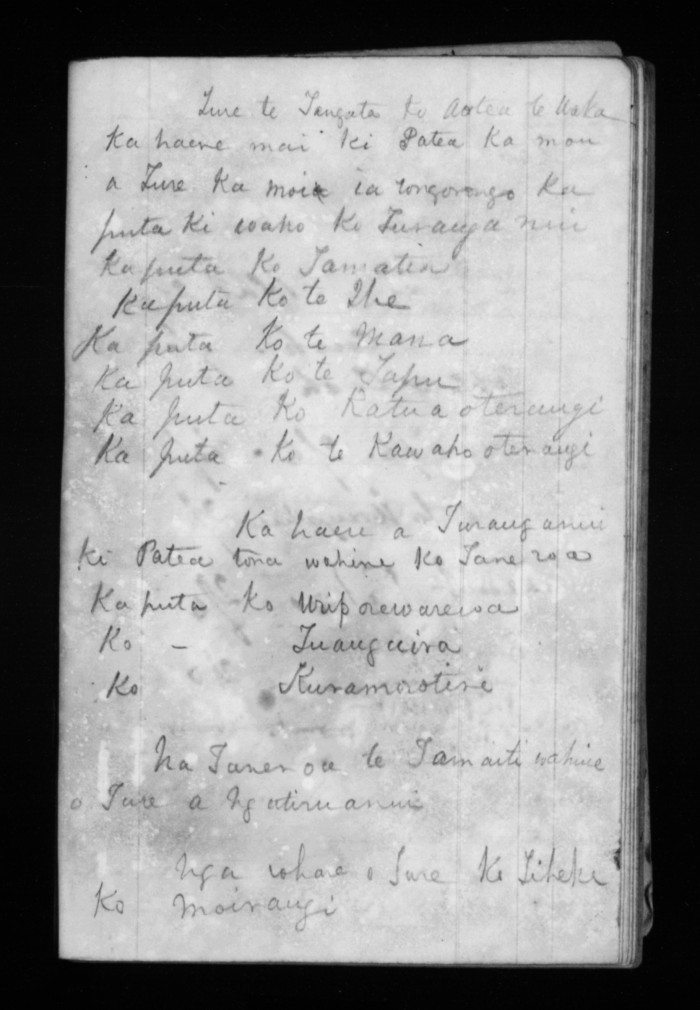 Ture te Tangata ko Aotea te Waka
Ka haere mai ki Patea Ka mou
a Ture Ka moia ia rongorongo Ka
puta ki waho ko Turanga nui
Ka puta Ko Tamatea
Ka puta Ko te Ihe
Ka puta Ko te Mana
Ka puta Ko te Tapu
Ka puta Ko Katua oterangi
Ka puta Ko te Kawaho oterangi
Ka haere a Turanganui
ki Patea tona wahine ko Taneroa
Ka puta ko
Ko - Tuanguira
Ko Kuramirotini
Na Taneroa te Tamaiti wahine
o Ture a Ngatiruanui
Nga whare o Ture Ko Tiheke
Ko Moirangi